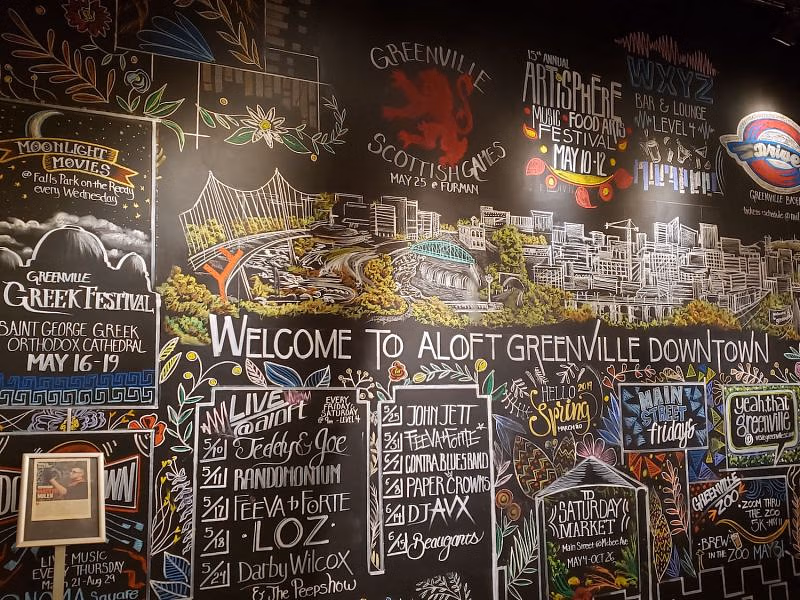 MOONLIGHT
MOVIES
@ Falls Park on the Reedy
every Wednesday
GREENVILLE
GREEK FESTIVAL
SAINT GEORGE GREEK
ORTHODOX CATHEDRAL
MAY 16-19
GREENVILLE
SCOTTISH GAMES
MAY 25 @ FURMAN
15th ANNUAL
ARTISPHERE
MUSIC FOOD ARTS
FESTIVAL
MAY 10-12
WXYZ
BAR & LOUNGE
LEVEL 4
Drive
GREENVILLE
WELCOME TO ALOFT GREENVILLE DOWNTOWN
LIVE
@ aloft
EVERY
FRIDAY
SATURDAY
@ 9pm - LEVEL 4
5/10 Teddy & Joe
5/11 RANDOMONIUM
5/17 FEEVA to FORTE
5/18 LOZ
5/24 Darby Wilcox
& The Peepshow
JOHN JETT
FEEVA to FORTE*
CONTRA BLUES BAND
PAPER CROWNS
DJ AVX
Beaugants
HELLO 2019
Spring
MARCH 20
MAIN
STREET
fridays
yeah, that
greenville
TD
SATURDAY
MARKET
Main Street @ McBee Ave
MAY 4-OCT 26
GREENVILLE
ZOO
ZOOM THRU
THE ZOO
5K - MAY 11
BREW
IN THE ZOO MAY 31
LIVE MUSIC
EVERY THURSDAY
March 21-Aug 29
NOMA Square